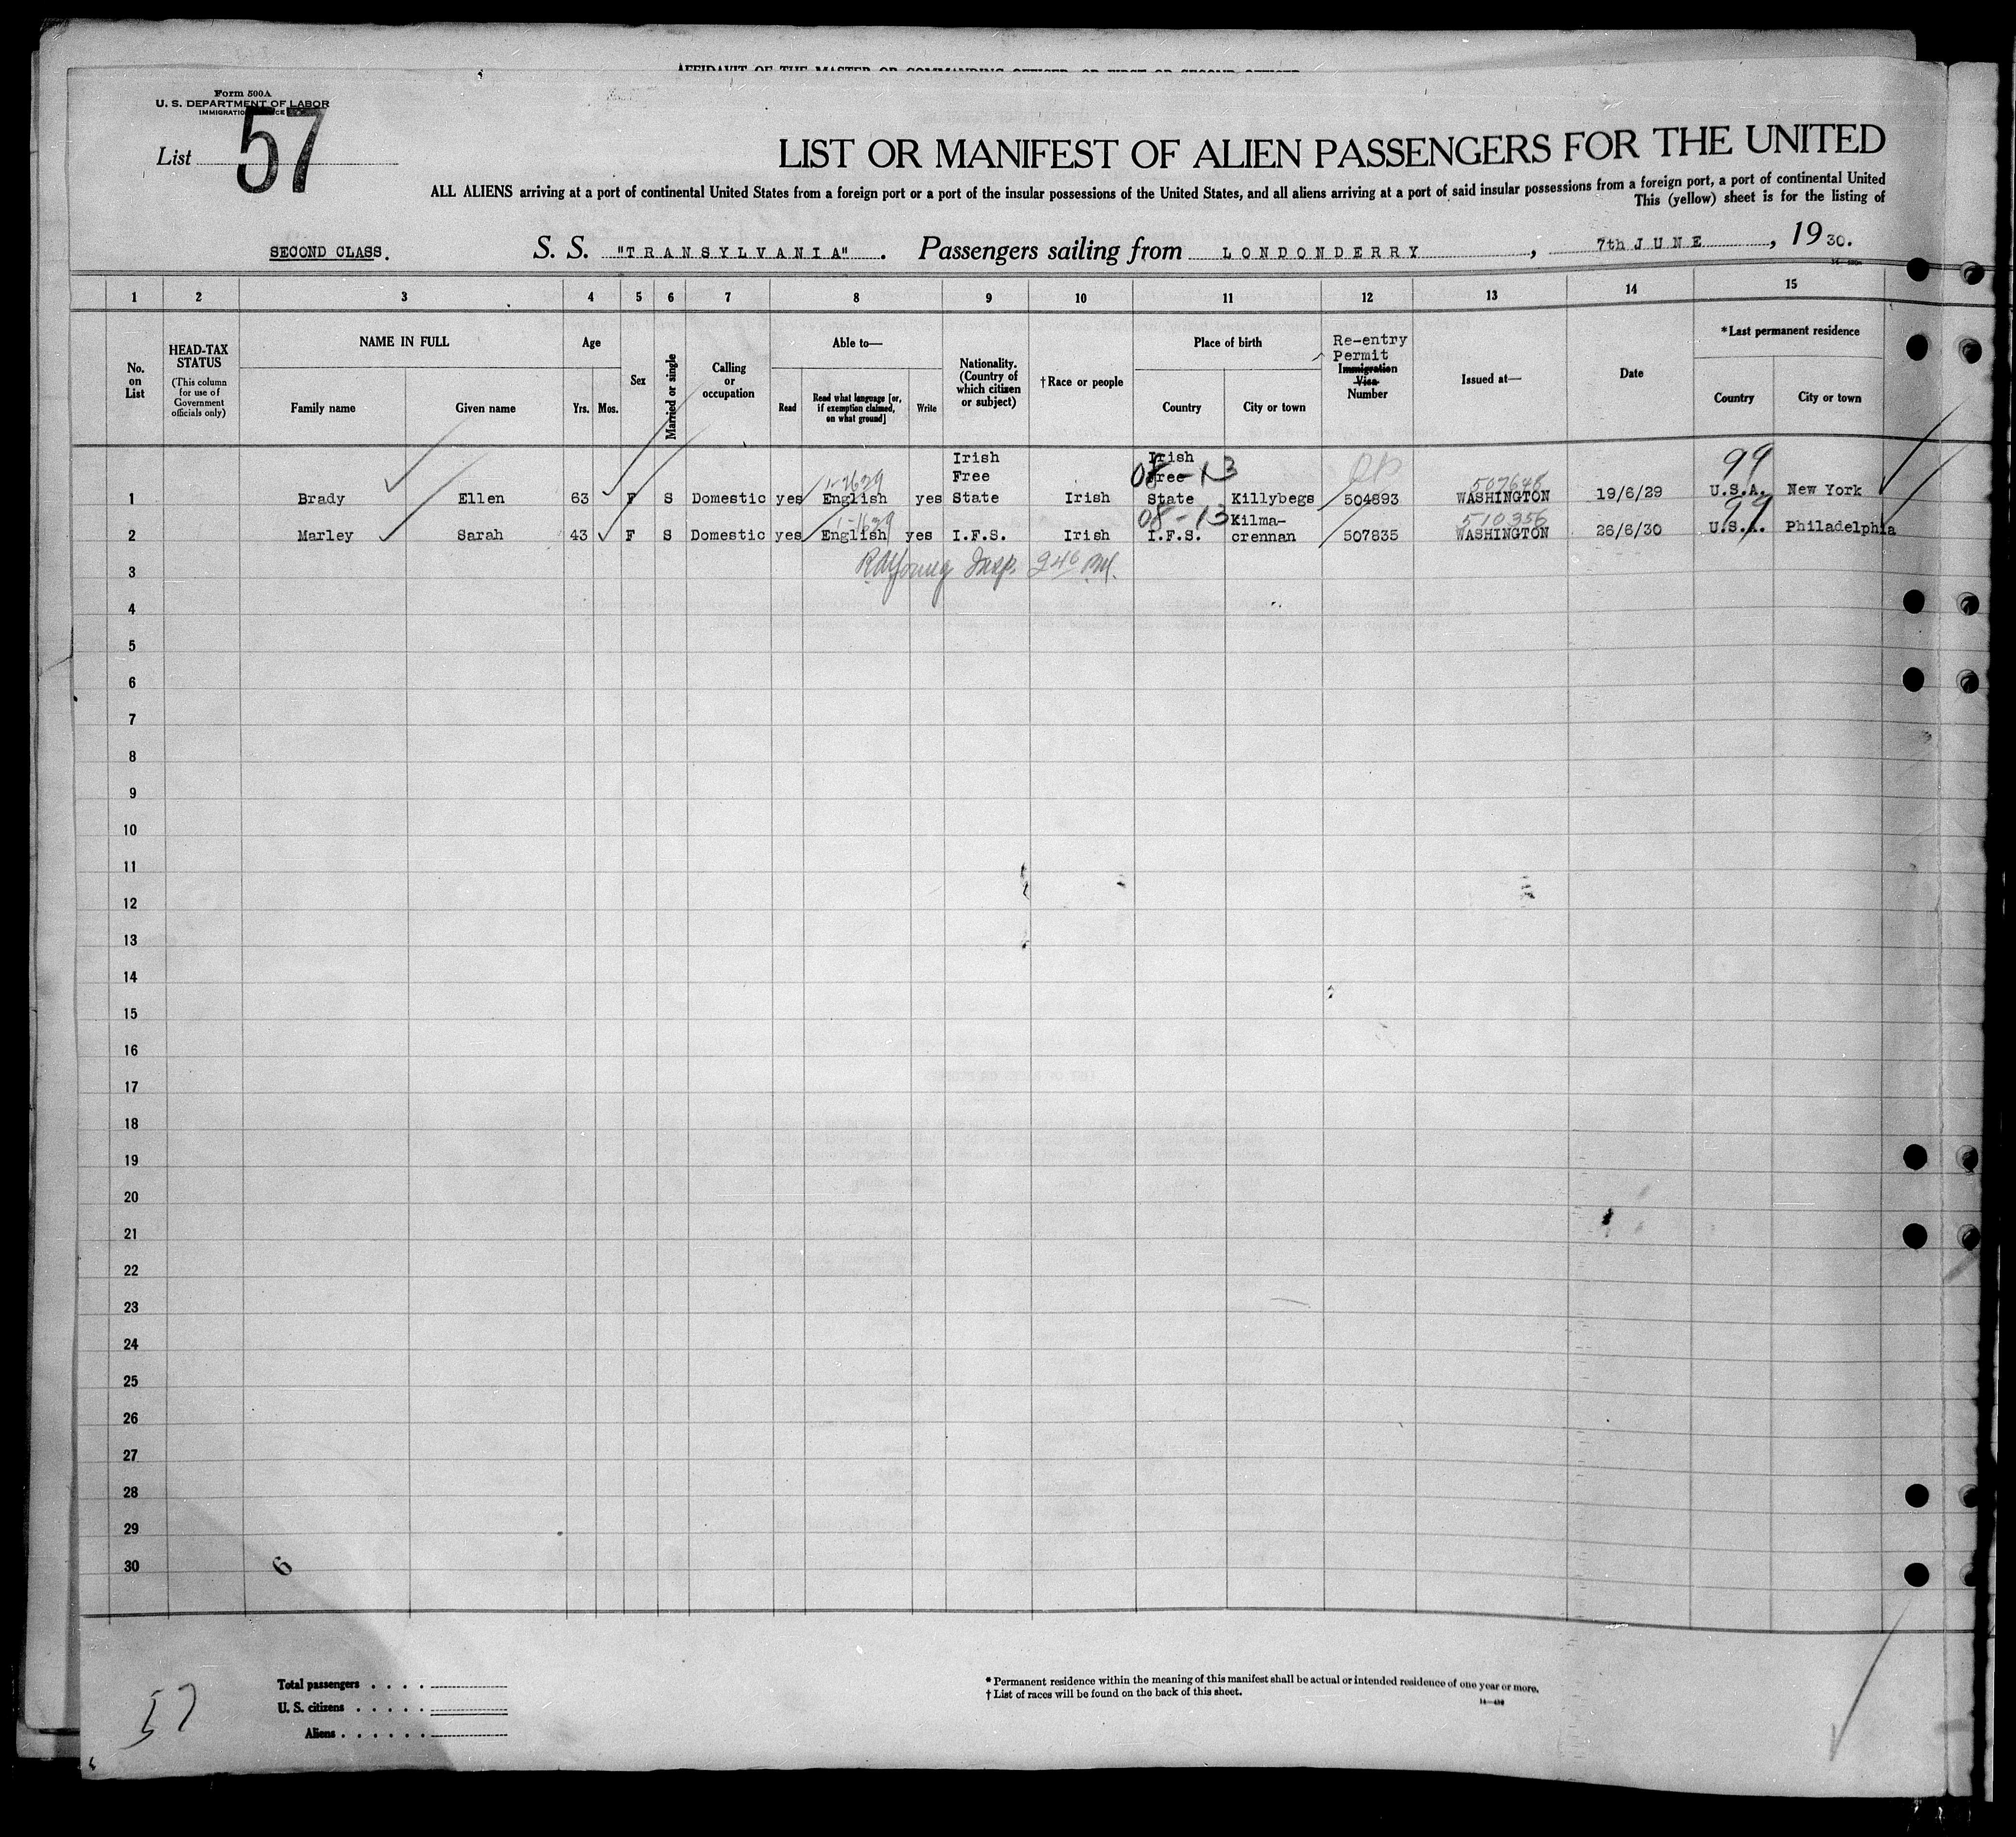 AFFIDAVIT OF THE MASTER OR COMMANDING OFFICER, OR FIRST OR SECOND OFFICER
Form 500A
U. S. DEPARTMENT OF LABOR
IMMIGRATION SERVICE
List 57
LIST OR MANIFEST OF ALIEN PASSENGERS FOR THE UNITED
ALL ALIENS arriving at a port of continental United States from a foreign port or a port of the insular possessions of the United States, and all aliens arriving at a port of said insular possessions from a foreign port, a port of continental United
This (yellow) sheet is for the listing of
SECOND CLASS. S. S. "TRANSYLVANIA". Passengers sailing from LONDONDERRY, 7th JUNE, 1930.
1 2 3 4 5 6 7 8 9 10 11 12 13 14 15
No. on List
HEAD-TAX STATUS (This column for use of Government officials only)
NAME IN FULL
Family name
Given name
Age
Yrs. Mos.
Sex
Married or single
Calling or occupation
Able to—
Read
Read what language [or, if exemption claimed, on what ground]
Write
Nationality. (Country of which citizen or subject)
†Race or people
Place of birth
Country
City or town
Re-entry Permit
Immigration Visa Number
Issued at—
Date
*Last permanent residence
Country
City or town
Irish Irish
Free 08-13 Free 99
1-2629 507646
1 Brady Ellen 63 F S Domestic yes English yes State Irish State Killybegs 504893 WASHINGTON 19/6/29 U.S.A. New York
1-1629 08-13 Kilma- 510356 99
2 Marley Sarah 43 F S Domestic yes English yes I.F.S. Irish I.F.S. crennan 507835 WASHINGTON 26/6/30 U.S.A. Philadelphia
3 Young Insp. 240 PM.
4
5
6
7
8
9
10
11
12
13
14
15
16
17
18
19
20
21
22
23
24
25
26
27
28
29
30 6
57
Total passengers . . . .
U. S. citizens . . . . .
Aliens . . . . . .
* Permanent residence within the meaning of this manifest shall be actual or intended residence of one year or more.
† List of races will be found on the back of this sheet.